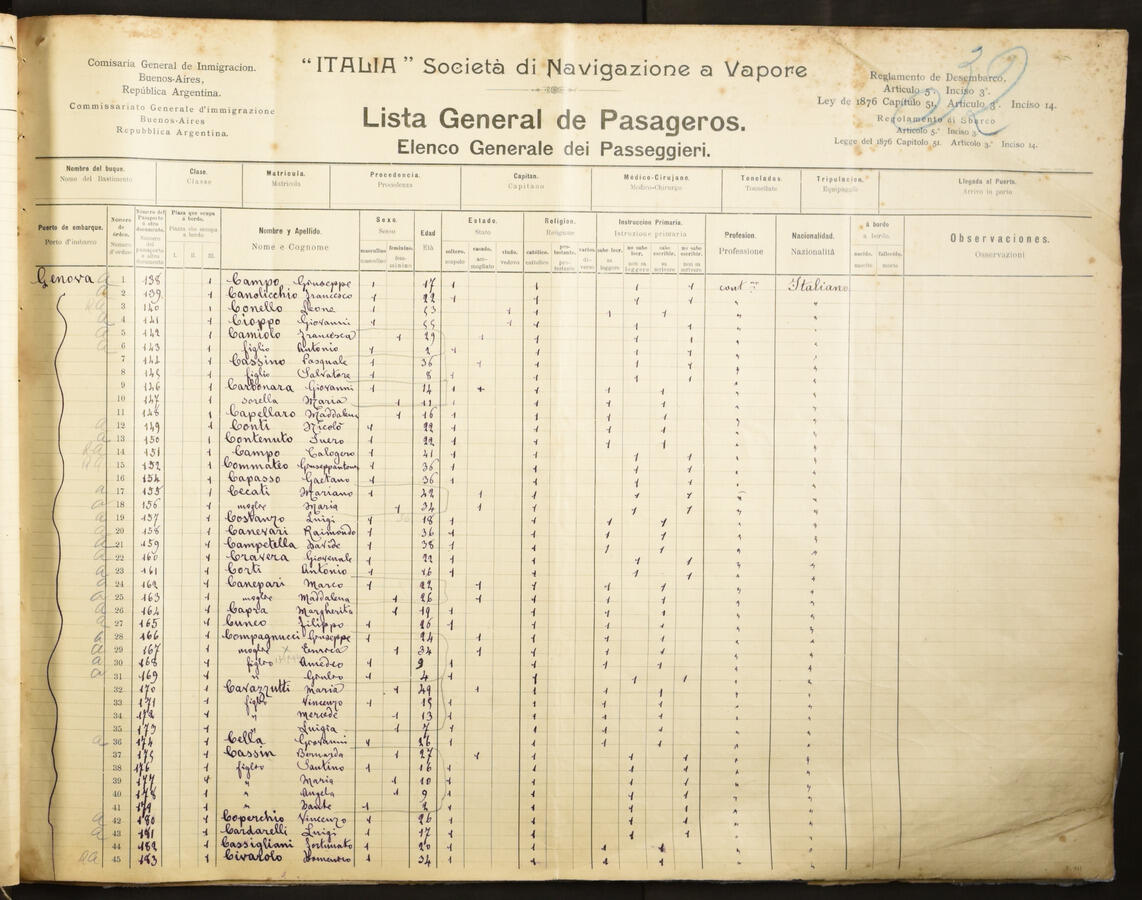 Comisaria General de Inmigracion.
Buenos-Aires,
República Argentina.
Commissariato Generale d'immigrazione
Buenos-Aires
Repubblica Argentina.
"ITALIA" Società di Navigazione a Vapore
Lista General de Pasageros.
Elenco Generale dei Passeggieri.
32
Reglamento de Desembarco.
Articulo 5°. Inciso 3°.
Ley de 1876 Capítulo 51, Articulo 3°. Inciso 14.
Regolamento di Sbarco
Articolo 5.° Inciso 3.
Legge del 1876 Capitolo 51. Articolo 3.° Inciso 14.
Nombre del buque. Clase. Matricula. Procedencia. Capitan. Médico-Cirujano. Toneladas. Tripulacion. Llegada al Puerto.
Nome del Bastimento Classe Matricola Procedenza Capitano Medico-Chirurgo Tonnellate Equipaggio Arrivo in porto
Puerto de embarque. Porto d'imbarco
Número de órden. Numero d'ordine
Plaza que ocupa á bordo. I. II. III.
Nombre y Apellido. Nome e Cognome
Sexo. Sesso masculino maschile feminino. femminino
Edad Età
Estado. Stato soltero. casado. viudo. vedovo
Religion. Religione católica. cattolica protestante. varias. diverse
Instruccion Primaria. Istruzione primaria sabe leer. sa leggere no sabe leer. non sa leggere sabe escribir. sa scrivere no sabe escribir. non sa scrivere
Profesion. Professione
Nacionalidad. Nazionalità
á bordo a bordo. nacido. nascito fallecido. morto
Observaciones. Osservazioni
Genova 1 138 Campo Giuseppe 17 cont. Italiano
2 139 Canolicchio Francesco 22
3 140 Conello Leone 53
4 141 Cioppo Giovanni 55
5 142 Camiolo Francesca 29
6 143 figlio Antonio 2
7 144 Cassino Pasquale 36
8 145 figlio Salvatore 8
9 146 Carbonara Giovanni 14
10 147 sorella Maria 11
11 148 Capellaro Maddalena 16
12 149 Conti Nicolò 22
13 150 Contenuto Suero 22
14 151 Campo Calogero 41
15 152 Commateo Giuseppantonio 36
16 154 Capasso Gaetano 36
17 155 Cecati Mariano 42
18 156 moglie Maria 34
19 157 Costanzo Luigi 18
20 158 Canevari Raimondo 36
21 159 Campetella Davide 38
22 160 Cravera Giovenale 22
23 161 Corti Antonio 16
24 162 Canepari Marco 22
25 163 moglie Maddalena 26
26 164 Capra Margherita 19
27 165 Cuneo Filippo 26
28 166 Compagnucci Giuseppe 24
29 167 moglie Enrica 34
30 168 figlio Amedeo 9
31 169 " 4
32 170 Cavazzutti Maria 49
33 171 figlio Vincenzo 15
34 172 " Mercede 13
35 173 " Luigia 7
36 174 Cella Giovanni 26
37 175 Cassin Bernarda 27
38 176 figlio Santino 16
39 177 " Maria 10
40 178 " Angela 9
41 179 " Dante 2
42 180 Coperchio Vincenzo 26
43 181 Cardarelli Luigi 17
44 182 Cassigliani Fortunato 20
45 183 Civarolo Domenico 34